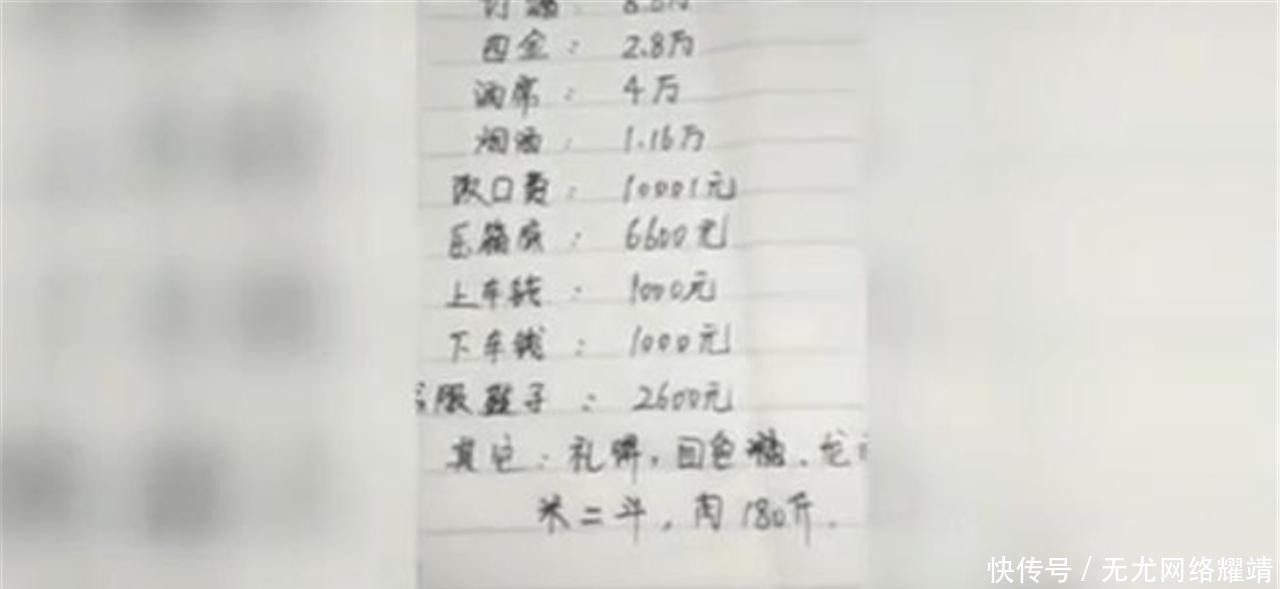 四金：2.8万
酒席：4万
烟酒：1.16万
改口费：10001元
压箱底：6600元
上车钱：1000元
下车钱：1000元
服鞋子：2600元
其它：礼饼，回色糖、
米二斗，肉180斤.
快传号 / 无尤网络耀靖